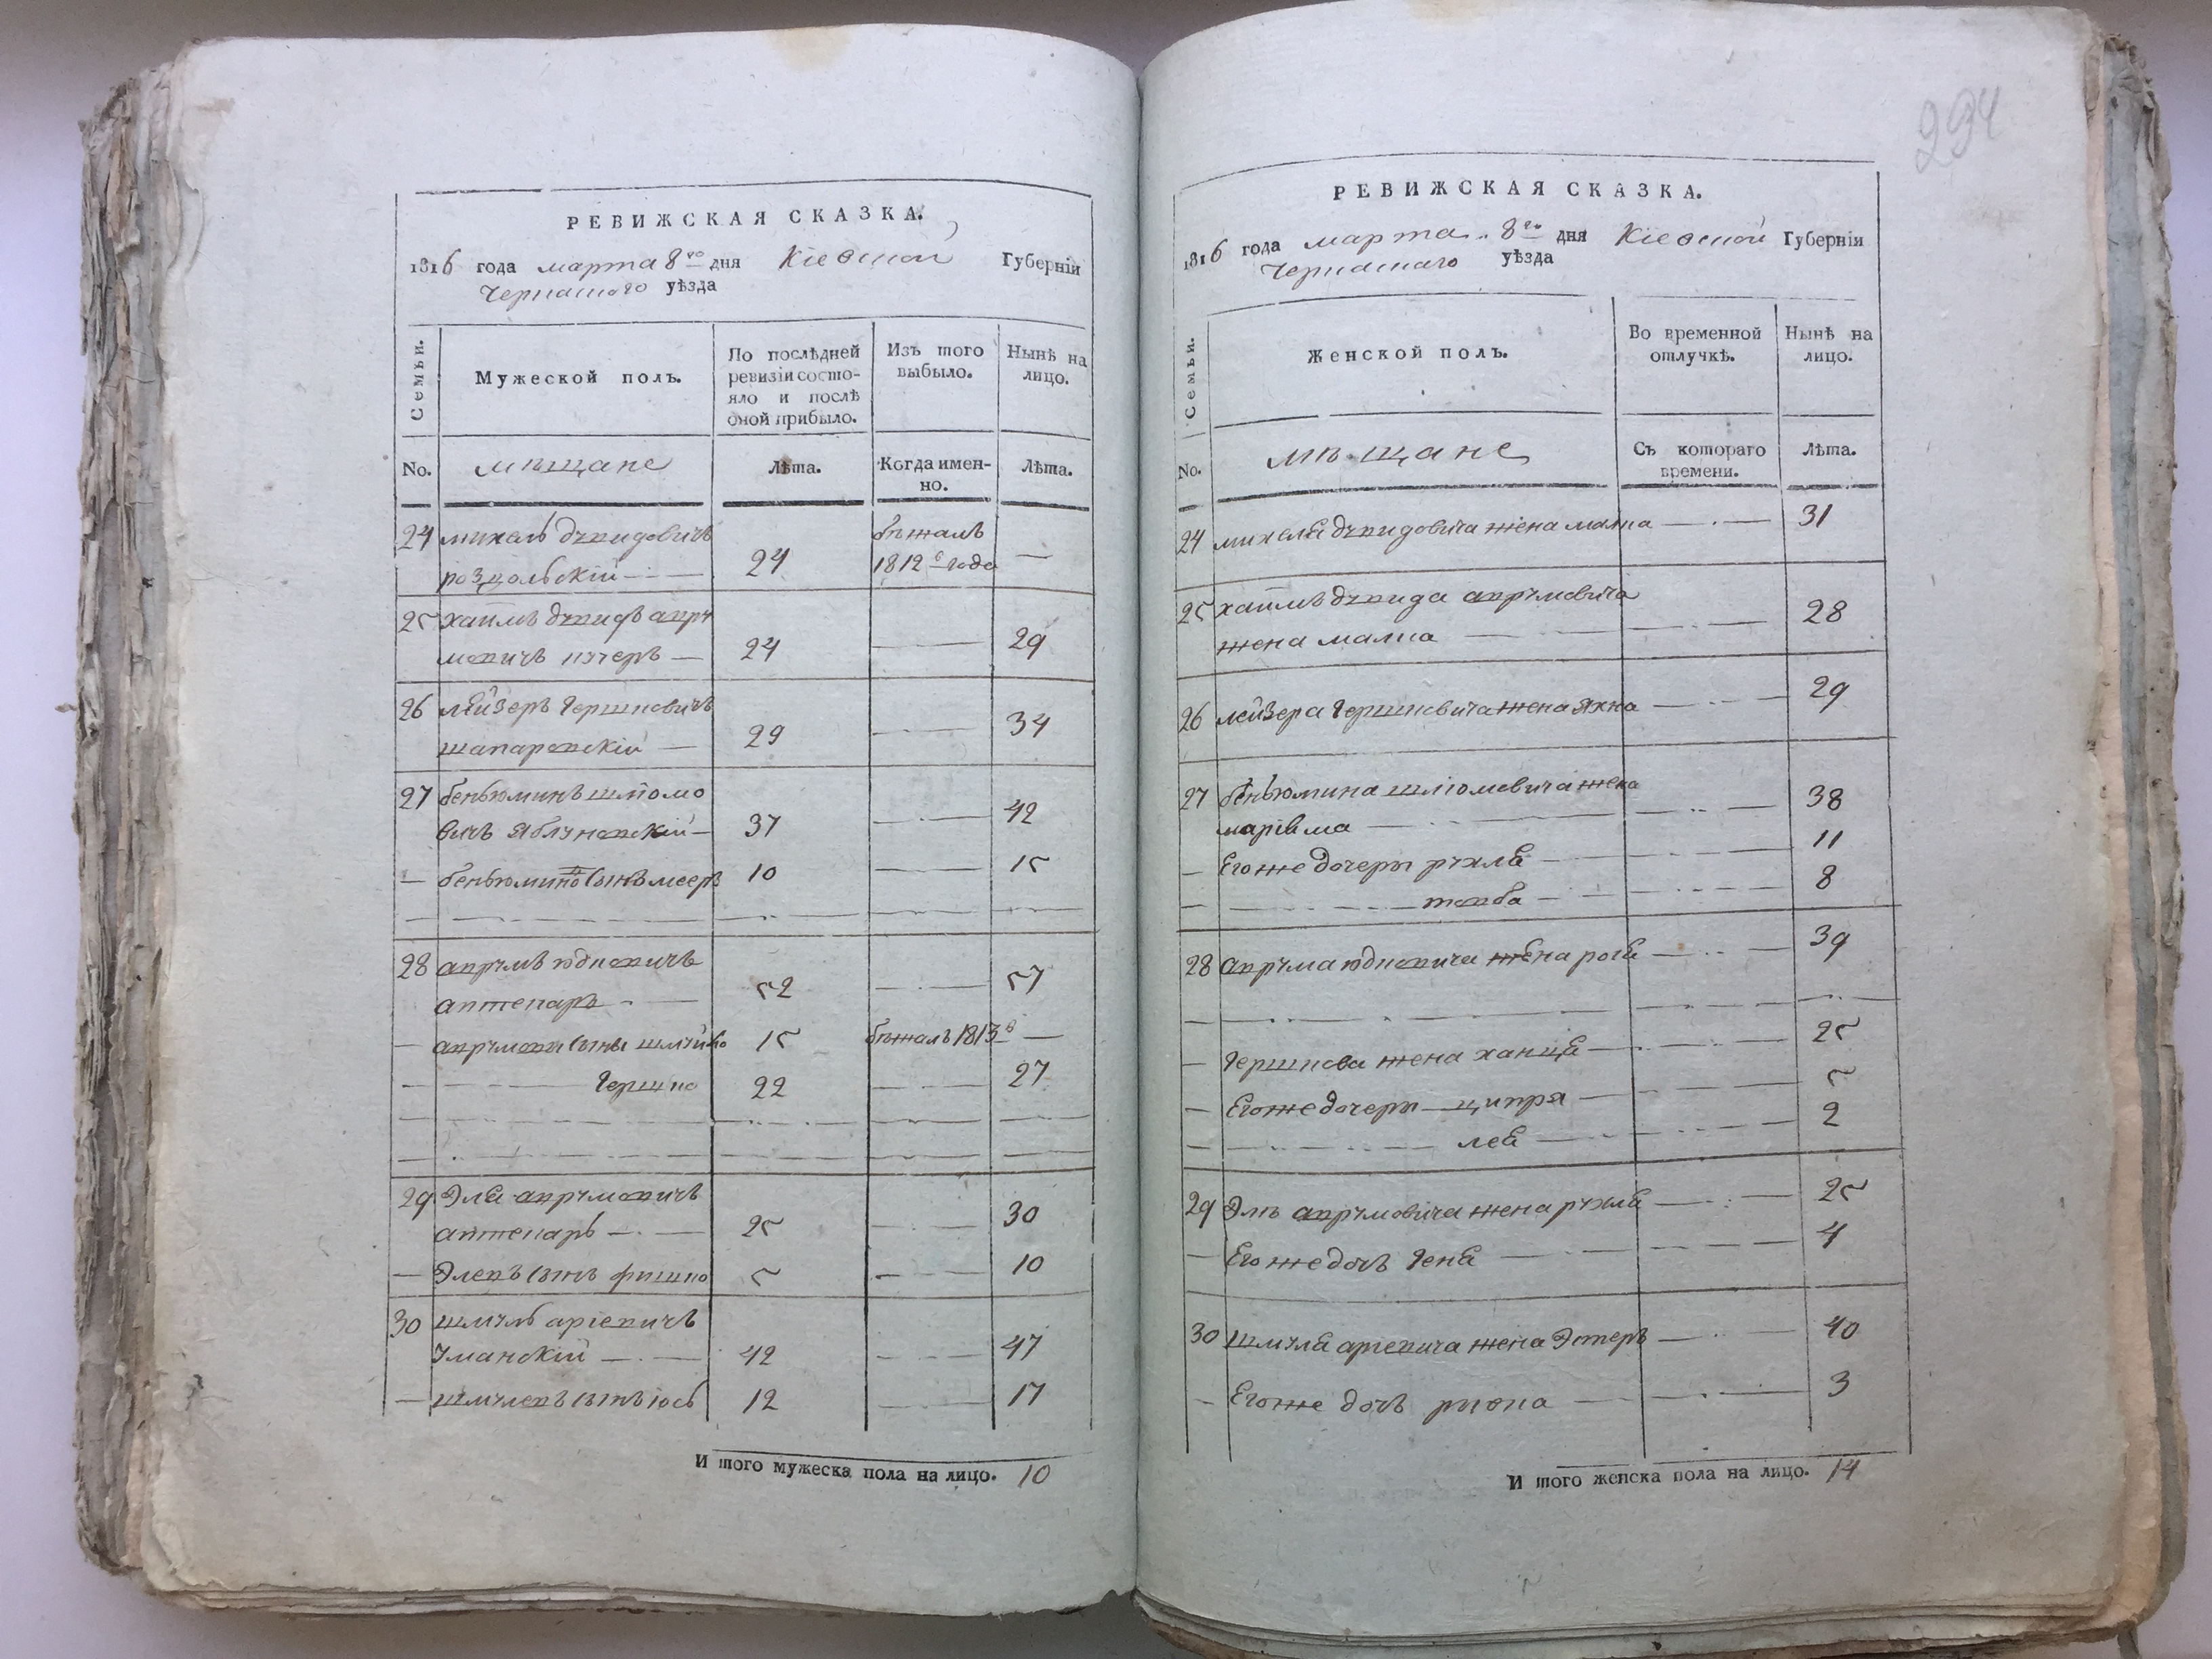 294
РЕВИЖСКАЯ СКАЗКА.
1816 года марта 8го дня Кіевской Губерніи
Черкаского уѣзда
Семьи.
Мужеской полъ.
По послѣдней ревизіи состо-
яло и послѣ
оной прибыло.
Изъ того
выбыло.
Нынѣ на
лицо.
No.
мѣщане
Лѣта.
Когда имен-
но.
Лѣта.
24 михель духидовичъ бѣжалъ
24 1812г года —
25 хаимъ
мовичъ 24 — 29
26 лейзеръ гершковичъ
29 — 34
27 беньюминъ шлiомо
вичъ яблуновскій — 37 — 42
— беньюминовъ сынъ мееръ 10 — 15
28 аврумъ юдковичъ
аптекаръ — 52 — 57
— аврумови сыны шлуйко 15 бѣжалъ 1813г —
— гершко 22 — 27
29 Эля аврумовичъ
аптекаръ — 25 — 30
— Элевъ сынъ фишко 5 — 10
30 шмуль аріевичъ
уманскій — 42 — 47
— шмулевъ сынъ іось 12 — 17
И того мужеска пола на лицо. 10
РЕВИЖСКАЯ СКАЗКА.
1816 года марта 8го дня Кіевской Губерніи
Черкаского уѣзда
Семьи.
Женской полъ.
Во временной
отлучкѣ.
Нынѣ на
лицо.
No.
мѣщане
Съ котораго
времени.
Лѣта.
24 жена — 31
25 хаимъ аврумовича
жена малка — 28
26 лейзера гершковича жена яхна — 29
27 беньюмина шлiомовича жена
маріяма — 38
— Его же дочеры рухля — 11
— тауба — 8
28 аврума юдковича жена — 39
— гершкова жена ханця — 25
— Его же дочеры ципра — 5
— лея — 2
29 Эля аврумовича жена рухля — 25
— Его же дочь геня — 4
30 шмуля аріевича жена Эстеръ — 40
— Его же дочь ривка — 3
И того женска пола на лицо. 14